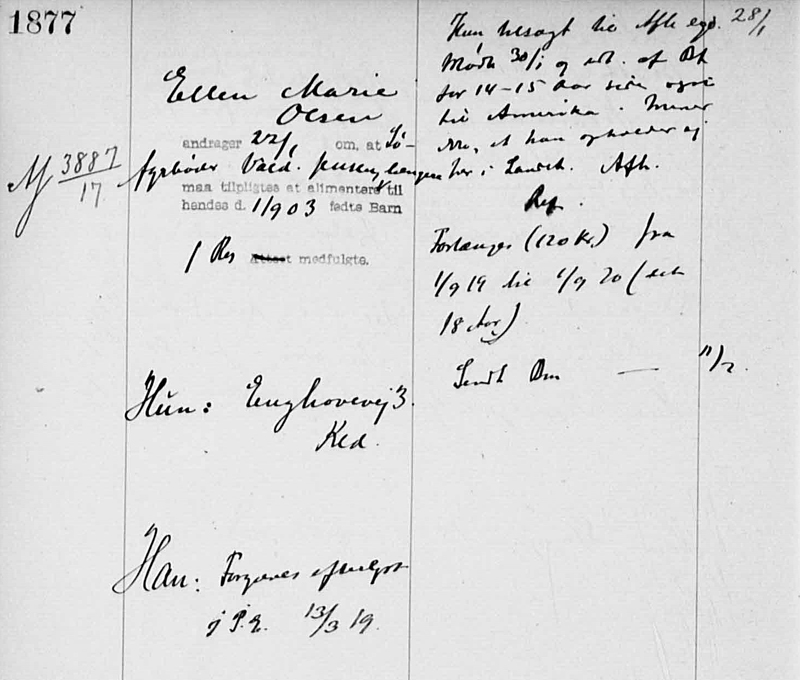 1877
Af 3887/17
Ellen Marie
Olsen
andrager 22/1 om, at Sö-
fyrböder Vald. Jensen,
maa tilpligtes at alimentere til
hendes d. 1/9 03 fødte Barn
1 Res Attest medfulgte.
Hun: Enghavevej 3.
Kld.
Han: Forgæves efterlyst
i P.E. 13/3 19.
Hun besøgt til Afh. 28/1
Mødt 30/1 og erl. at
for 14-15 Aar siden
til Amerika. Mener
ikke, at han opholder sig
her i Landet. Afh.
Res.
Forlænges (120 Kr.) fra
1/9 19 til 1/9 20 (det
18 Aar)
Sendt Bm — 11/2.